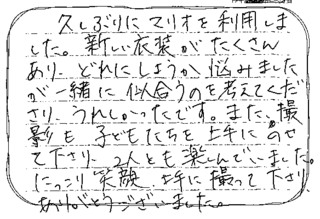 久しぶりにマリオを利用しま
した。新しい衣装がたくさん
あり、どれにしようか悩みました
が一緒に似合うのを考えてくだ
さり、うれしかったです。また、撮
影も子どもたちを上手にのせ
て下さり、2人とも楽しんでいました。
にっこり笑顔 上手に撮って下さり、
ありがとうございました。